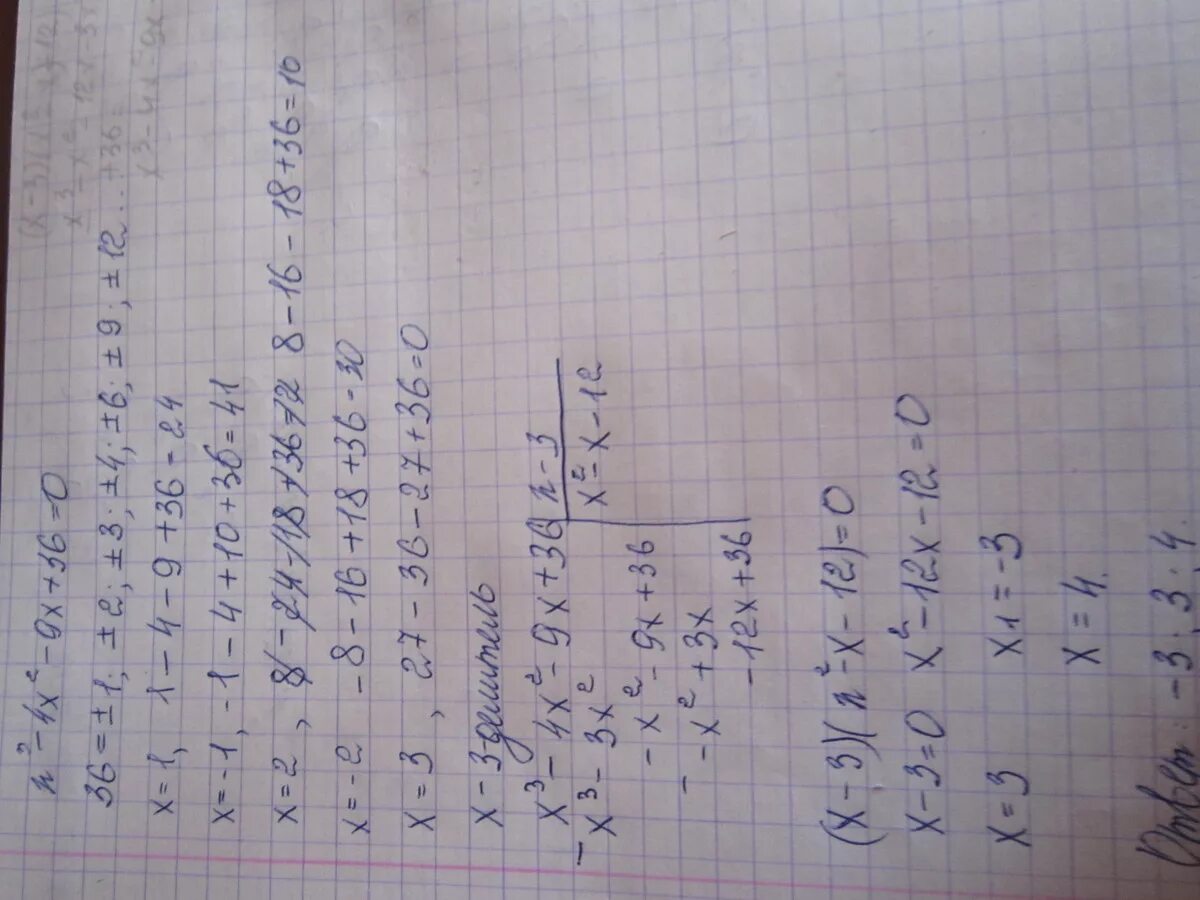 x³ - 4x² - 9x + 36 = 0
36 = ±1; ±2; ±3; ±4; ±6; ±9; ±12...
x = 1, 1 - 4 - 9 + 36 = 24
x = -1, -1 - 4 + 10 + 36 = 41
x = 2, 8 - 24 - 18 + 36 = 2 8 - 16 - 18 + 36 = 10
x = -2 -8 - 16 + 18 + 36 = 30
x = 3, 27 - 36 - 27 + 36 = 0
x - 3 - делитель
x³ - 4x² - 9x + 36 | x - 3
- x³ - 3x² | x² - x - 12
- x² - 9x + 36
- - x² + 3x
- 12x + 36
(x - 3)(x² - x - 12) = 0
x - 3 = 0 x² - 12x - 12 = 0
x = 3 x1 = -3
x = 4.
Ответ: -3; 3; 4.